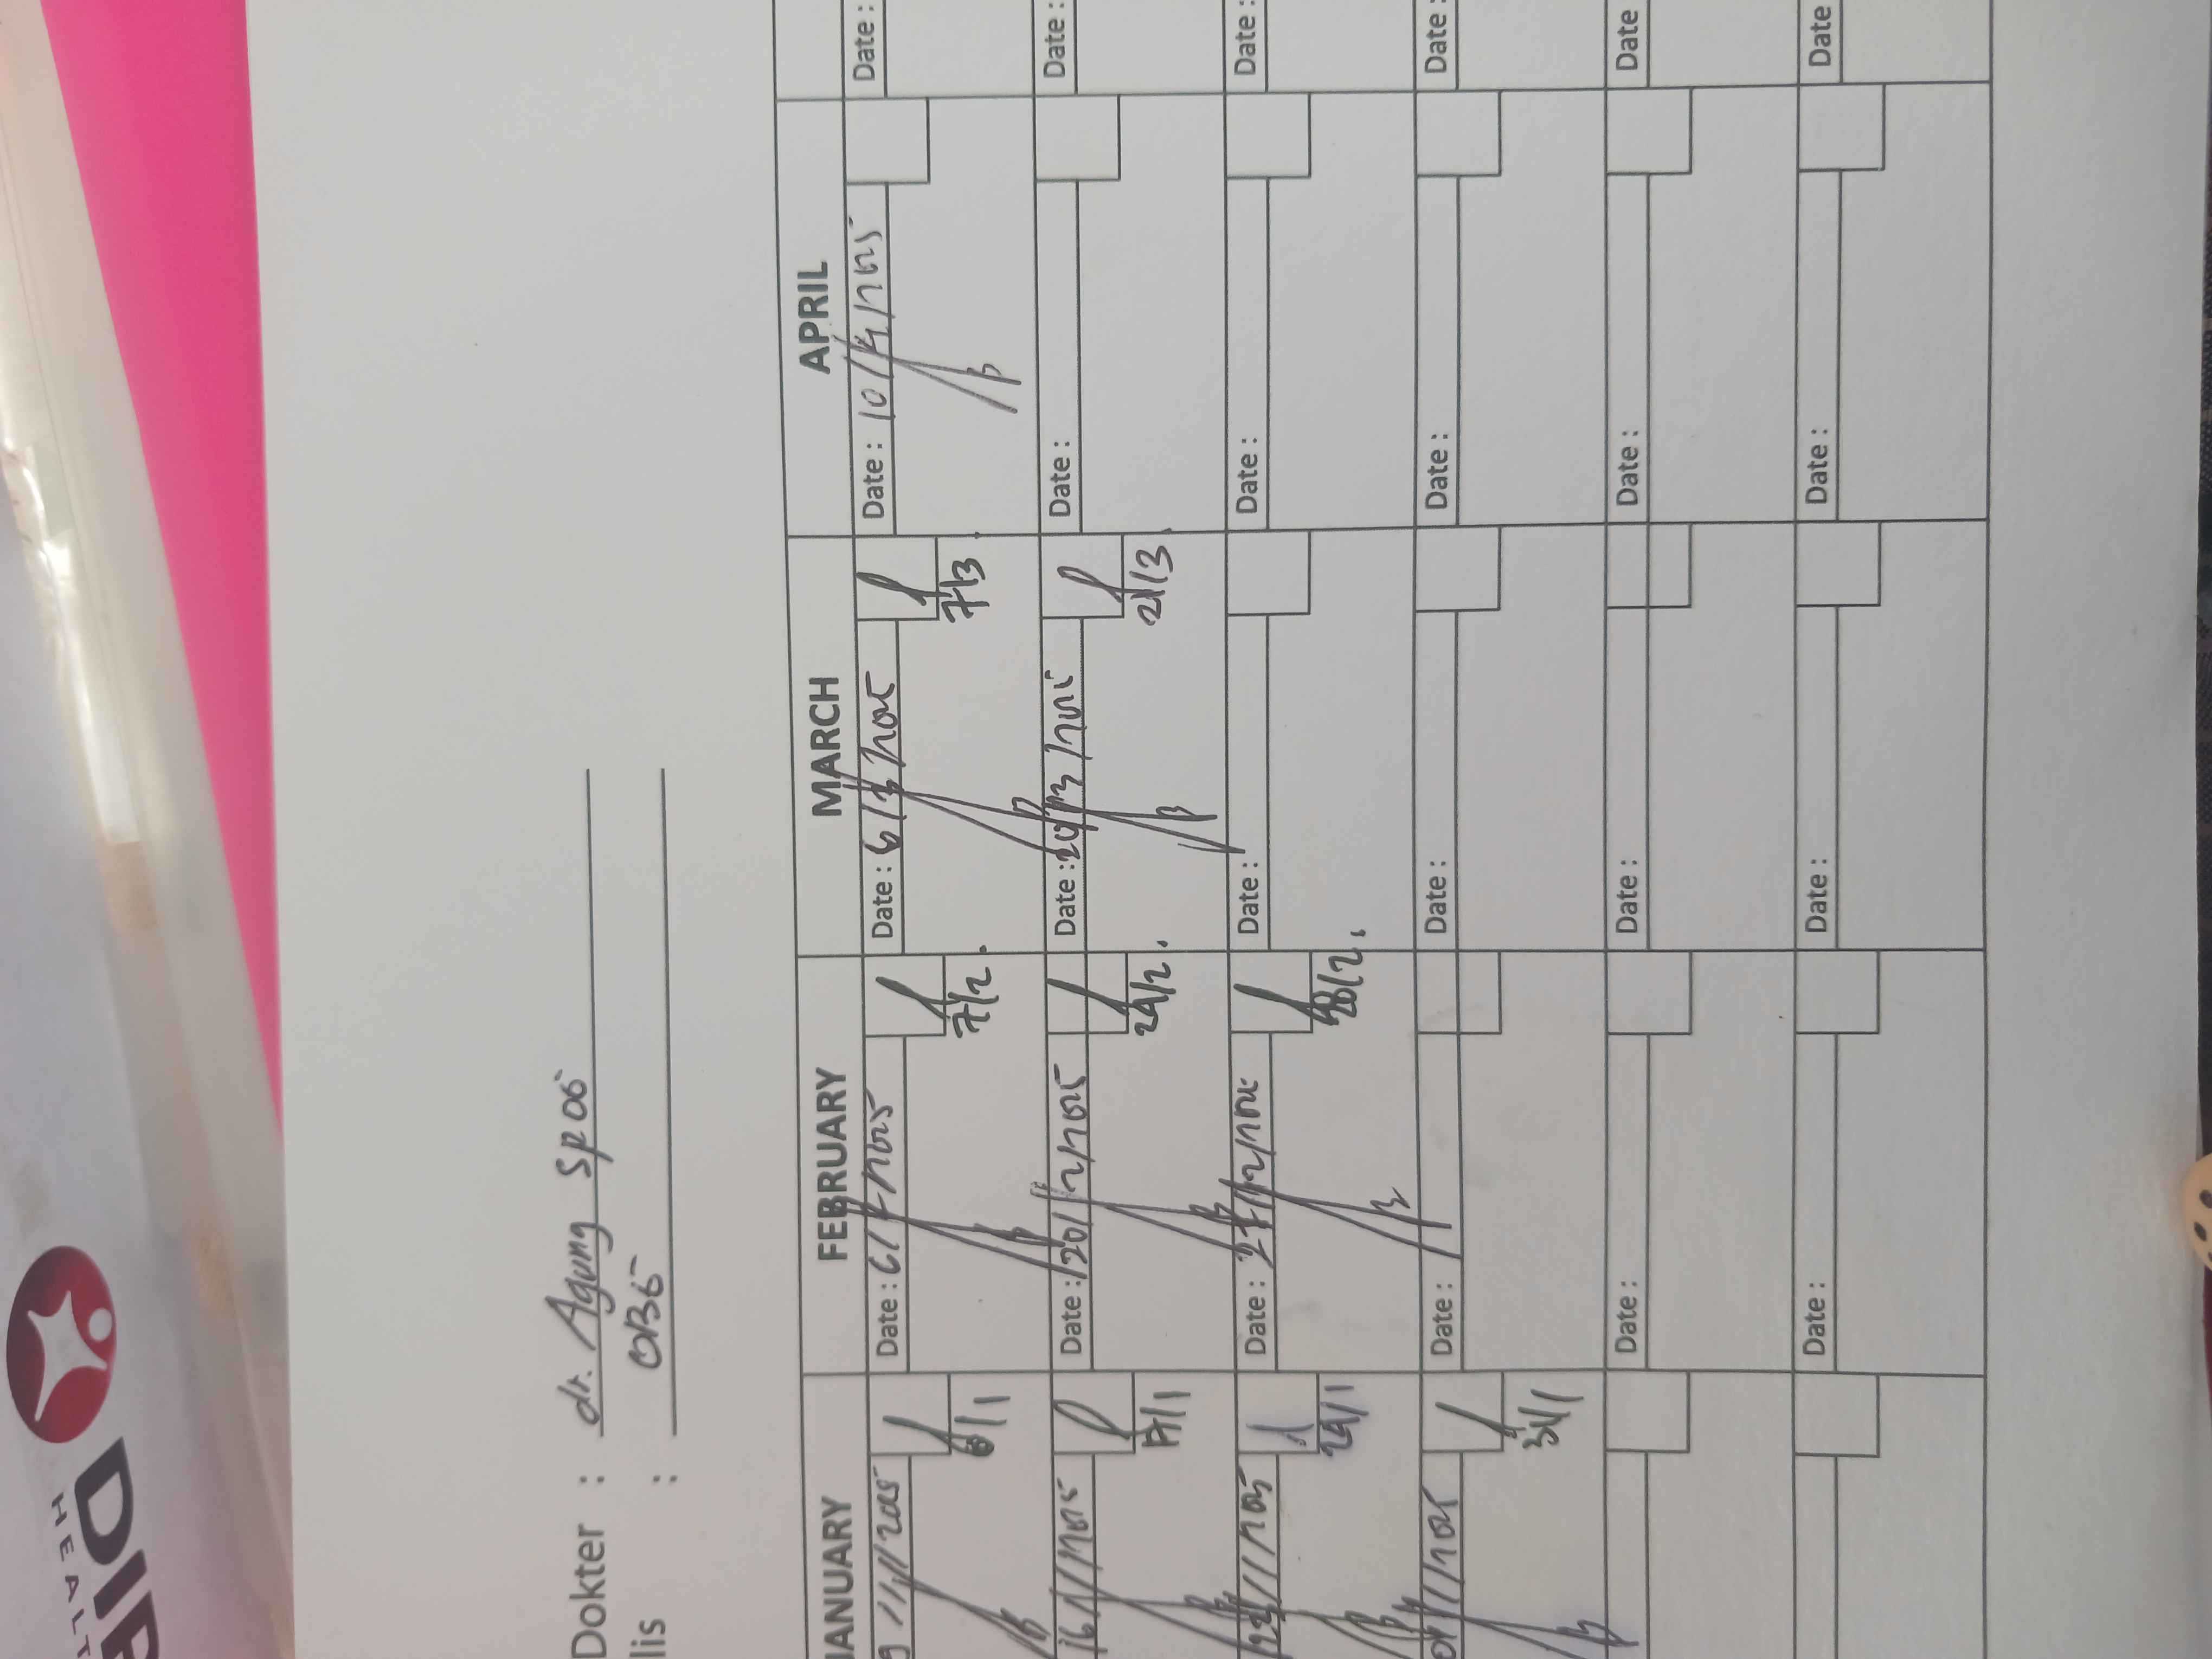 DIP
HEALT
Dokter : dr. Agung Sp OG
lis : OBG
JANUARY FEBRUARY MARCH APRIL
9/1/2025 Date : 6/2/2025 Date : 6/3/2025 Date : 10/4/2025 Date :
7/2. 7/3
16/1/2025 Date : 20/2/2025 Date : 20/3/2025 Date : Date :
17/1 24/2. 21/3
/1/2025 Date : 27/2/2025 Date : Date : Date :
24/1 28/2.
/1/2025 Date : Date : Date : Date :
31/1
Date : Date : Date : Date
Date : Date : Date : Date